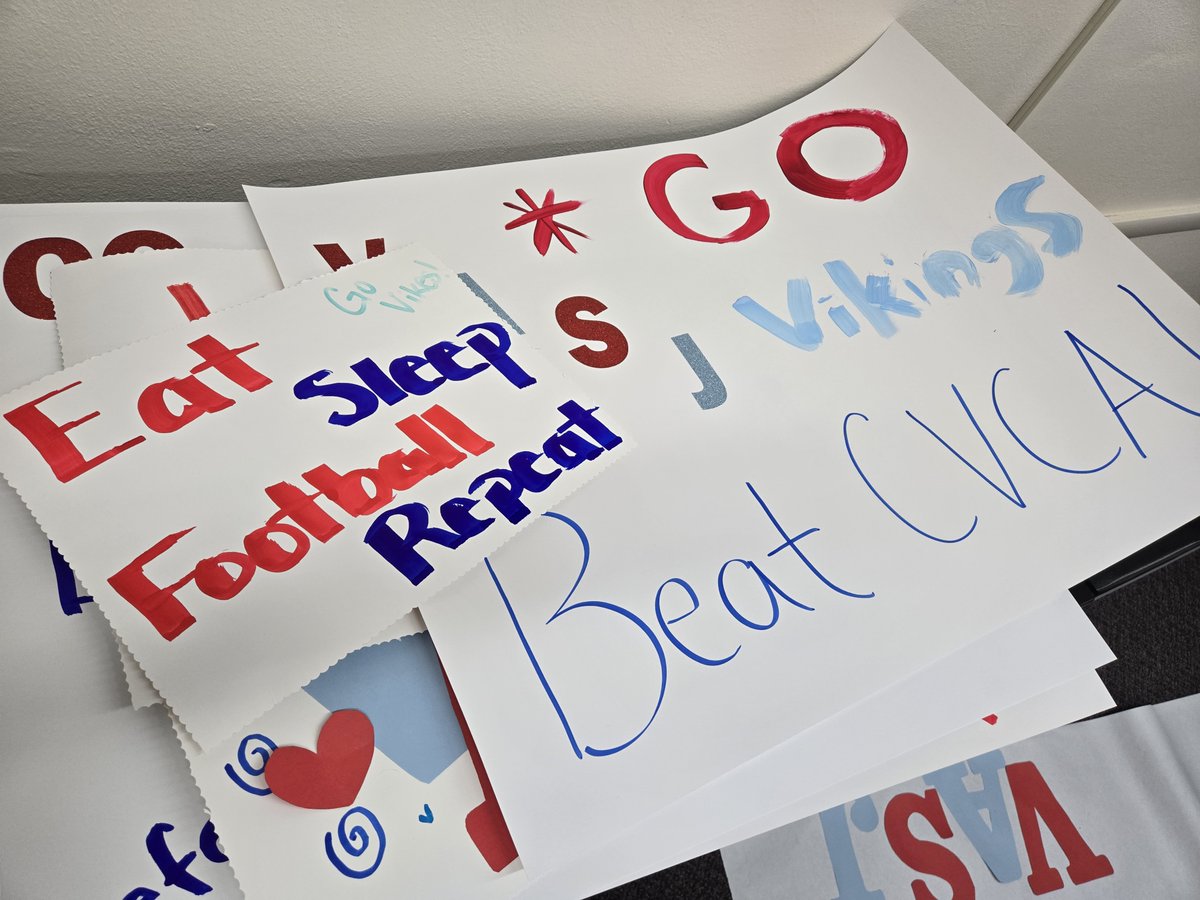 GO
Vikings
S J
Beat CVCA!
Go
Vikes!
Eat Sleep
Football
Repeat
VASJ